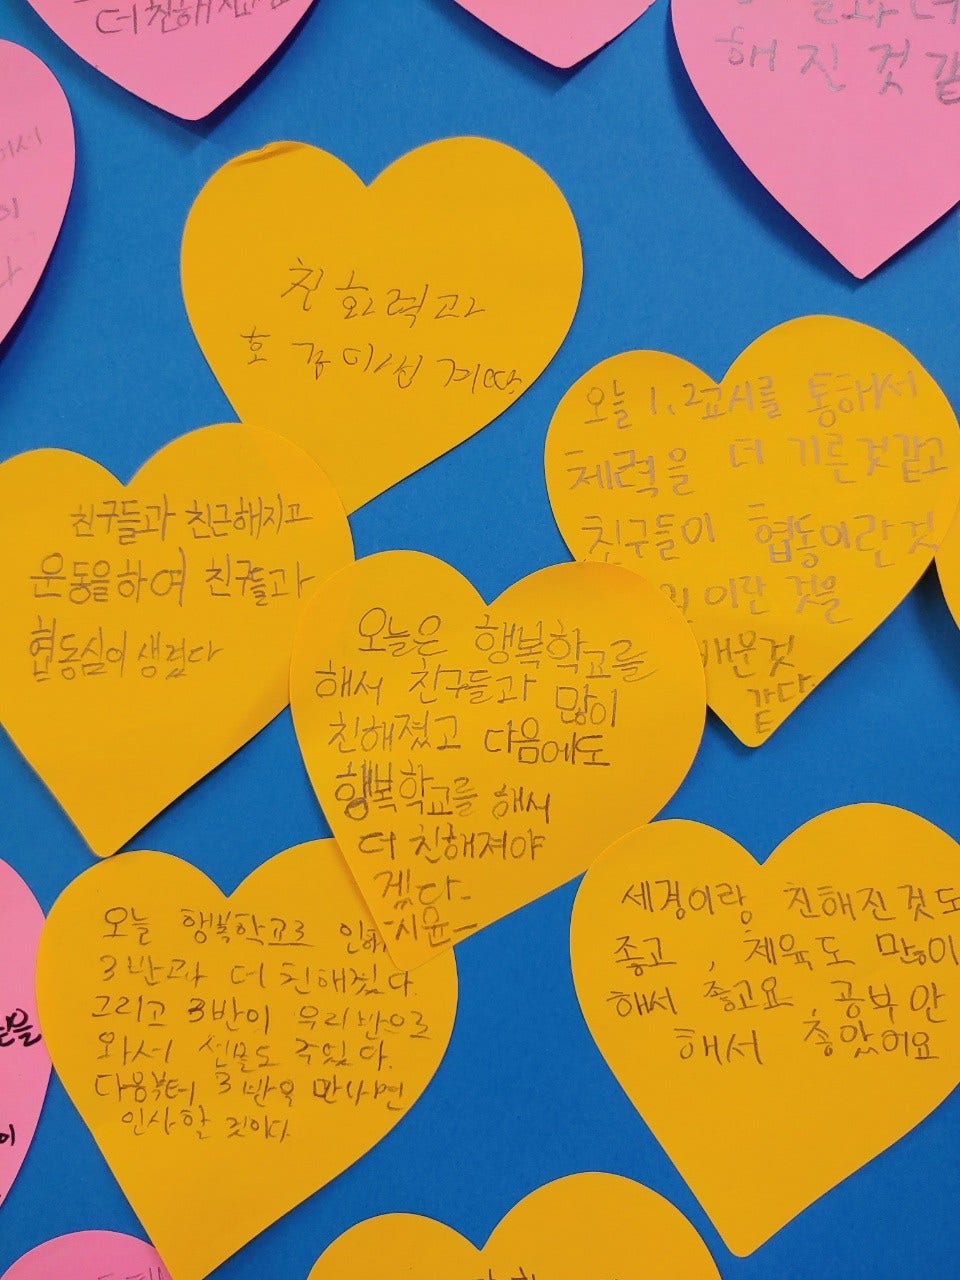 더 친해
해진 것 같
친화력과
호감이 생겼다.
오늘 1, 2교시를 통해서
체력을 더 기른것같고
친구들이 협동이란것
이란 것을
배운것
같다.
친구들과 친근해지고
운동을하여 친구들과
협동심이 생겼다
오늘은 행복학교를
해서 친구들과 많이
친해졌고 다음에도
행복학교를 해서
더 친해져야
겠다-
-시윤-
오늘 행복학교로 인해
3반과 더 친해졌다.
그리고 3반이 우리반으로
와서 선물도 주었다.
다음부터 3반을 만나면
인사할 것이다
세경이랑 친해진것도
좋고, 체육도 많이
해서 좋고요, 공부안
해서 좋았어요